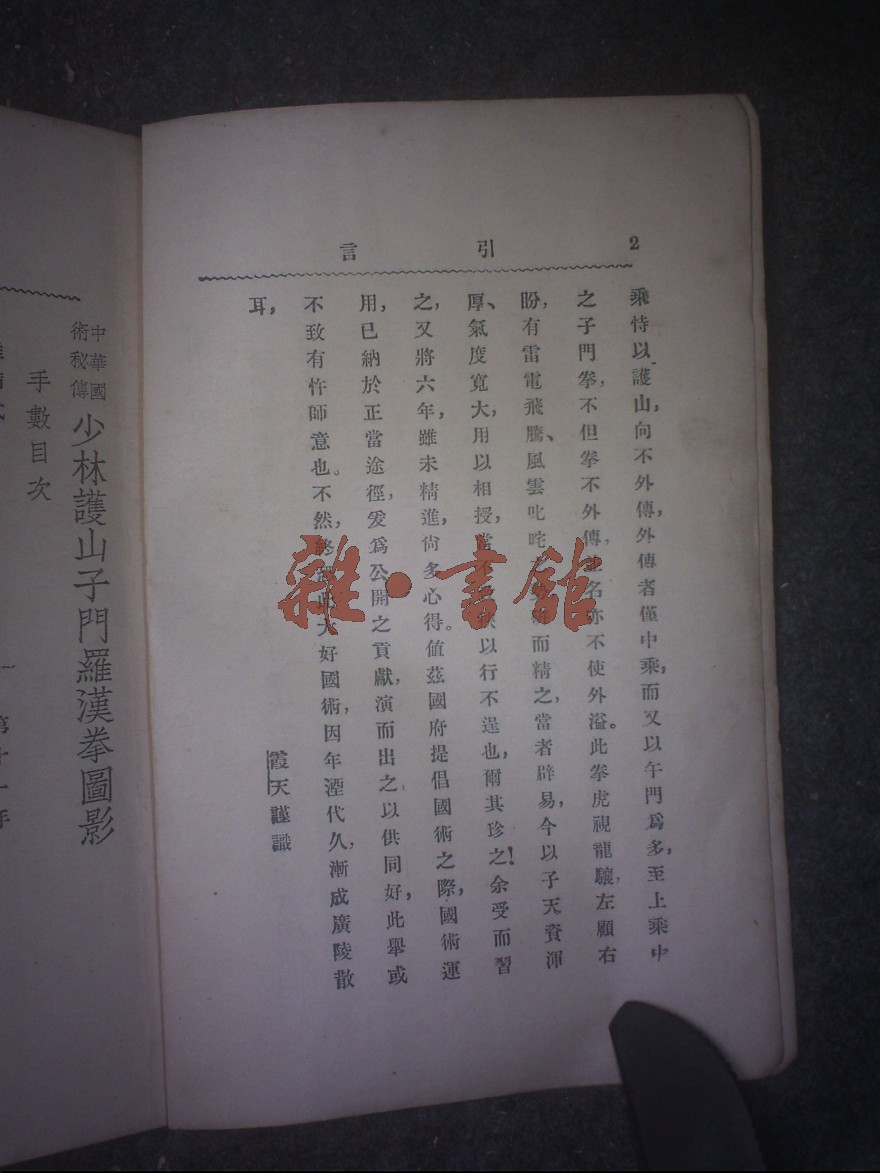 2
引言
乘恃以護山，向不外傳，外傳者僅中乘，而又以午門爲多，至上乘中
之子門拳，不但拳不外傳，名亦不使外溢。此拳虎視龍驤，左顧右
盼，有雷電飛騰、風雲叱咤而精之，當者辟易，今以子天資渾
厚、氣度寬大，用以相授，以行不逞也，爾其珍之！余受而習
之，又將六年，雖未精進，尙多心得。値茲國府提倡國術之際，國術運
用，已納於正當途徑，爰爲公開之貢獻，演而出之、以供同好，此舉或
不致有忤師意也。不然，終大好國術，因年湮代久，漸成廣陵散
耳，
霞天謹識
雜·書館
中華國術秘傳
少林護山子門羅漢拳圖影
手數目次
一
第十一